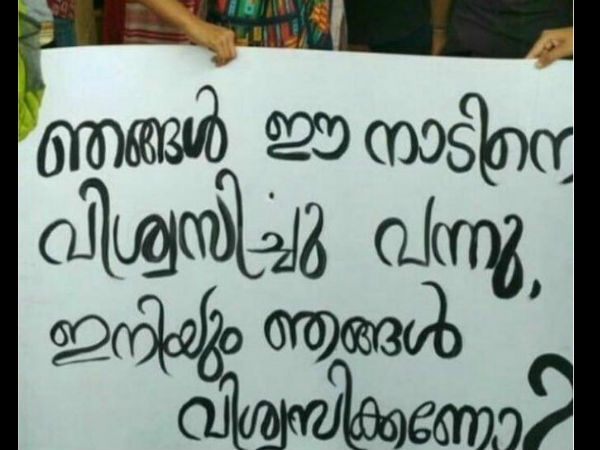 ഞങ്ങൾ ഈ നാടിനെ
വിശ്വസിച്ചു വന്നു,
ഇനിയും ഞങ്ങൾ
വിശ്വസിക്കണോ?